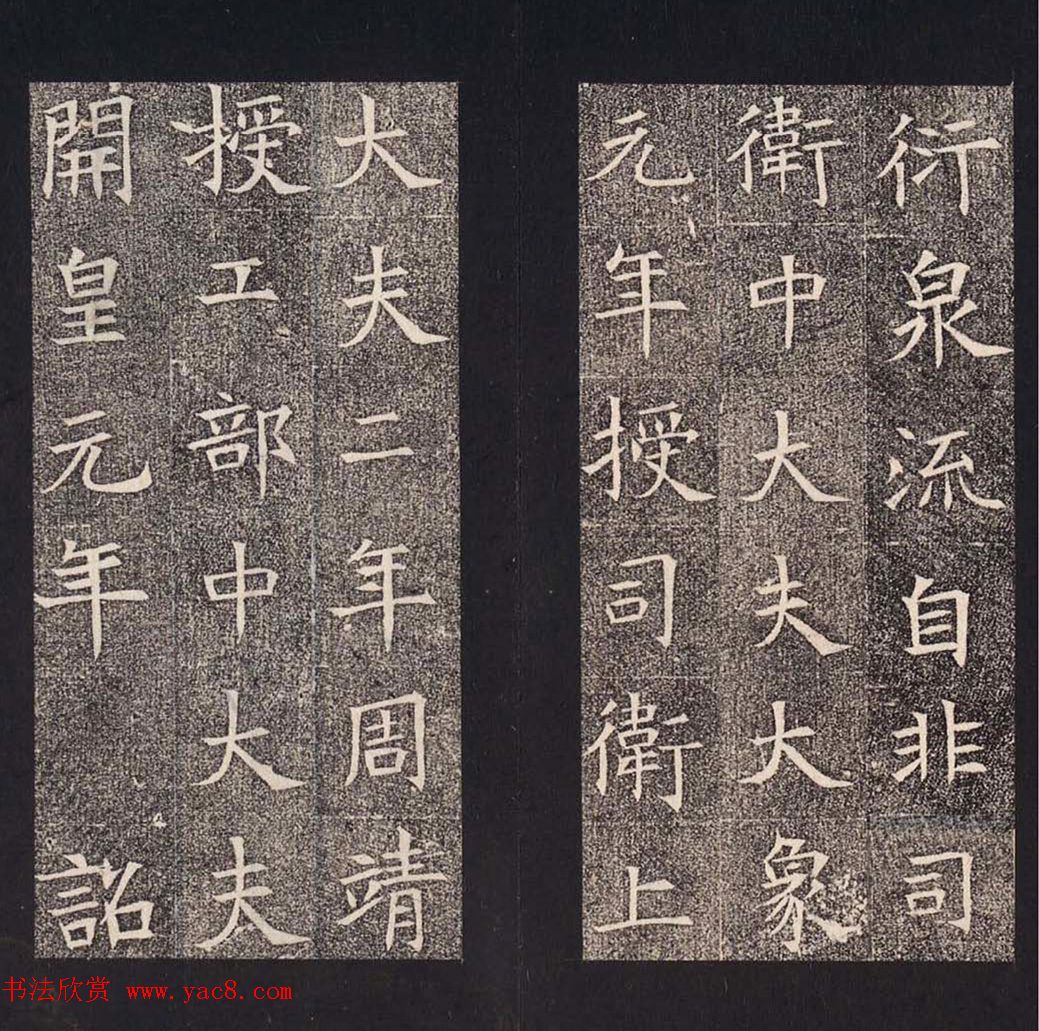 衍泉流自非司
衛中大夫大象
元年授司衛上
大夫二年周靖
授工部中大夫
開皇元年 詔
书法欣赏 www.yac8.com